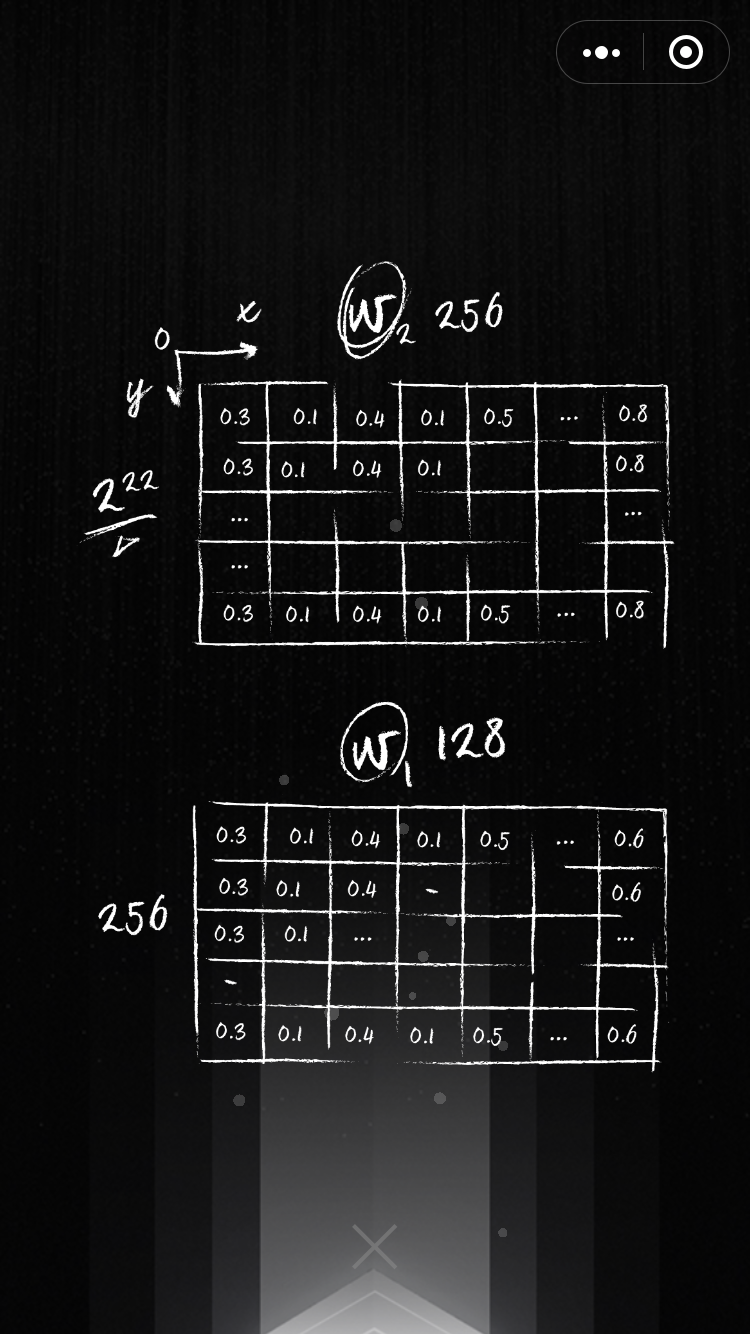 x
W₂ 256
0
y
0.3 0.1 0.4 0.1 0.5 ... 0.8
0.3 0.1 0.4 0.1 0.8
2²²
... ...
...
0.3 0.1 0.4 0.1 0.5 ... 0.8
W₁ 128
0.3 0.1 0.4 0.1 0.5 ... 0.6
0.3 0.1 0.4 - 0.6
256
0.3 0.1 ... ...
-
0.3 0.1 0.4 0.1 0.5 ... 0.6